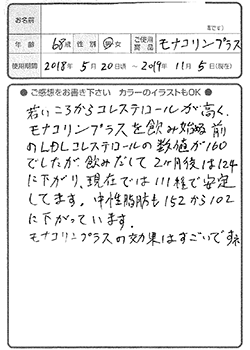 お名前
年齢 68歳 性別 男・女 ご使用商品 モナコリンプラス
使用期間 2018年 5月 20日 頃 〜 2019年 11月 5日(現在)
● ご感想をお書き下さい カラーのイラストもOK ●
若いころからコレステロールが高く、
モナコリンプラスを飲み始める前
のLDLコレステロールの数値が160
でしたが、飲みだして2ヶ月後は124
に下がり、現在では111程で安定
してます。中性脂肪も152から102
に下がっています。
モナコリンプラスの効果はすごいですネ